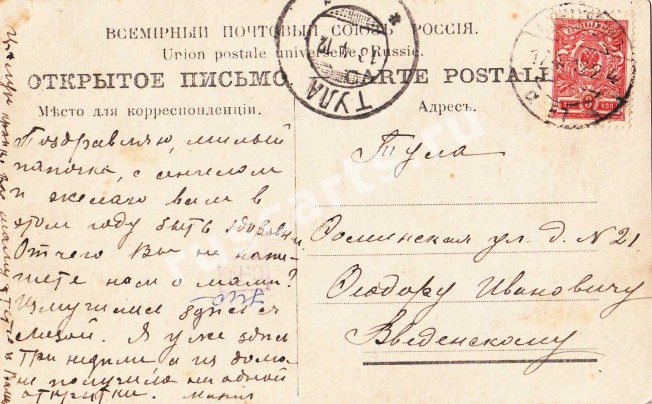 ВСЕМІРНЫЙ ПОЧТОВЫЙ СОЮЗЪ РОССІЯ.
Union postale universelle Russie.
ОТКРЫТОЕ ПИСЬМО CARTE POSTALE
Мѣсто для корреспонденціи.
Адресъ.
ТУЛА
13 4 12
Поздравляю, милый
папочка, с ангелом
и желаю вам в
этом году быть здоровым.
Отчего Вы не напи-
шете нам о мами?
Измучились здесь с
Лизой. Я уже здесь
три недели а из дома
не получила ни одной
открытки. Мания
Тула
ул. д. N 21.
Ѳеодору Ивановичу
Введенскому
russarts.ru